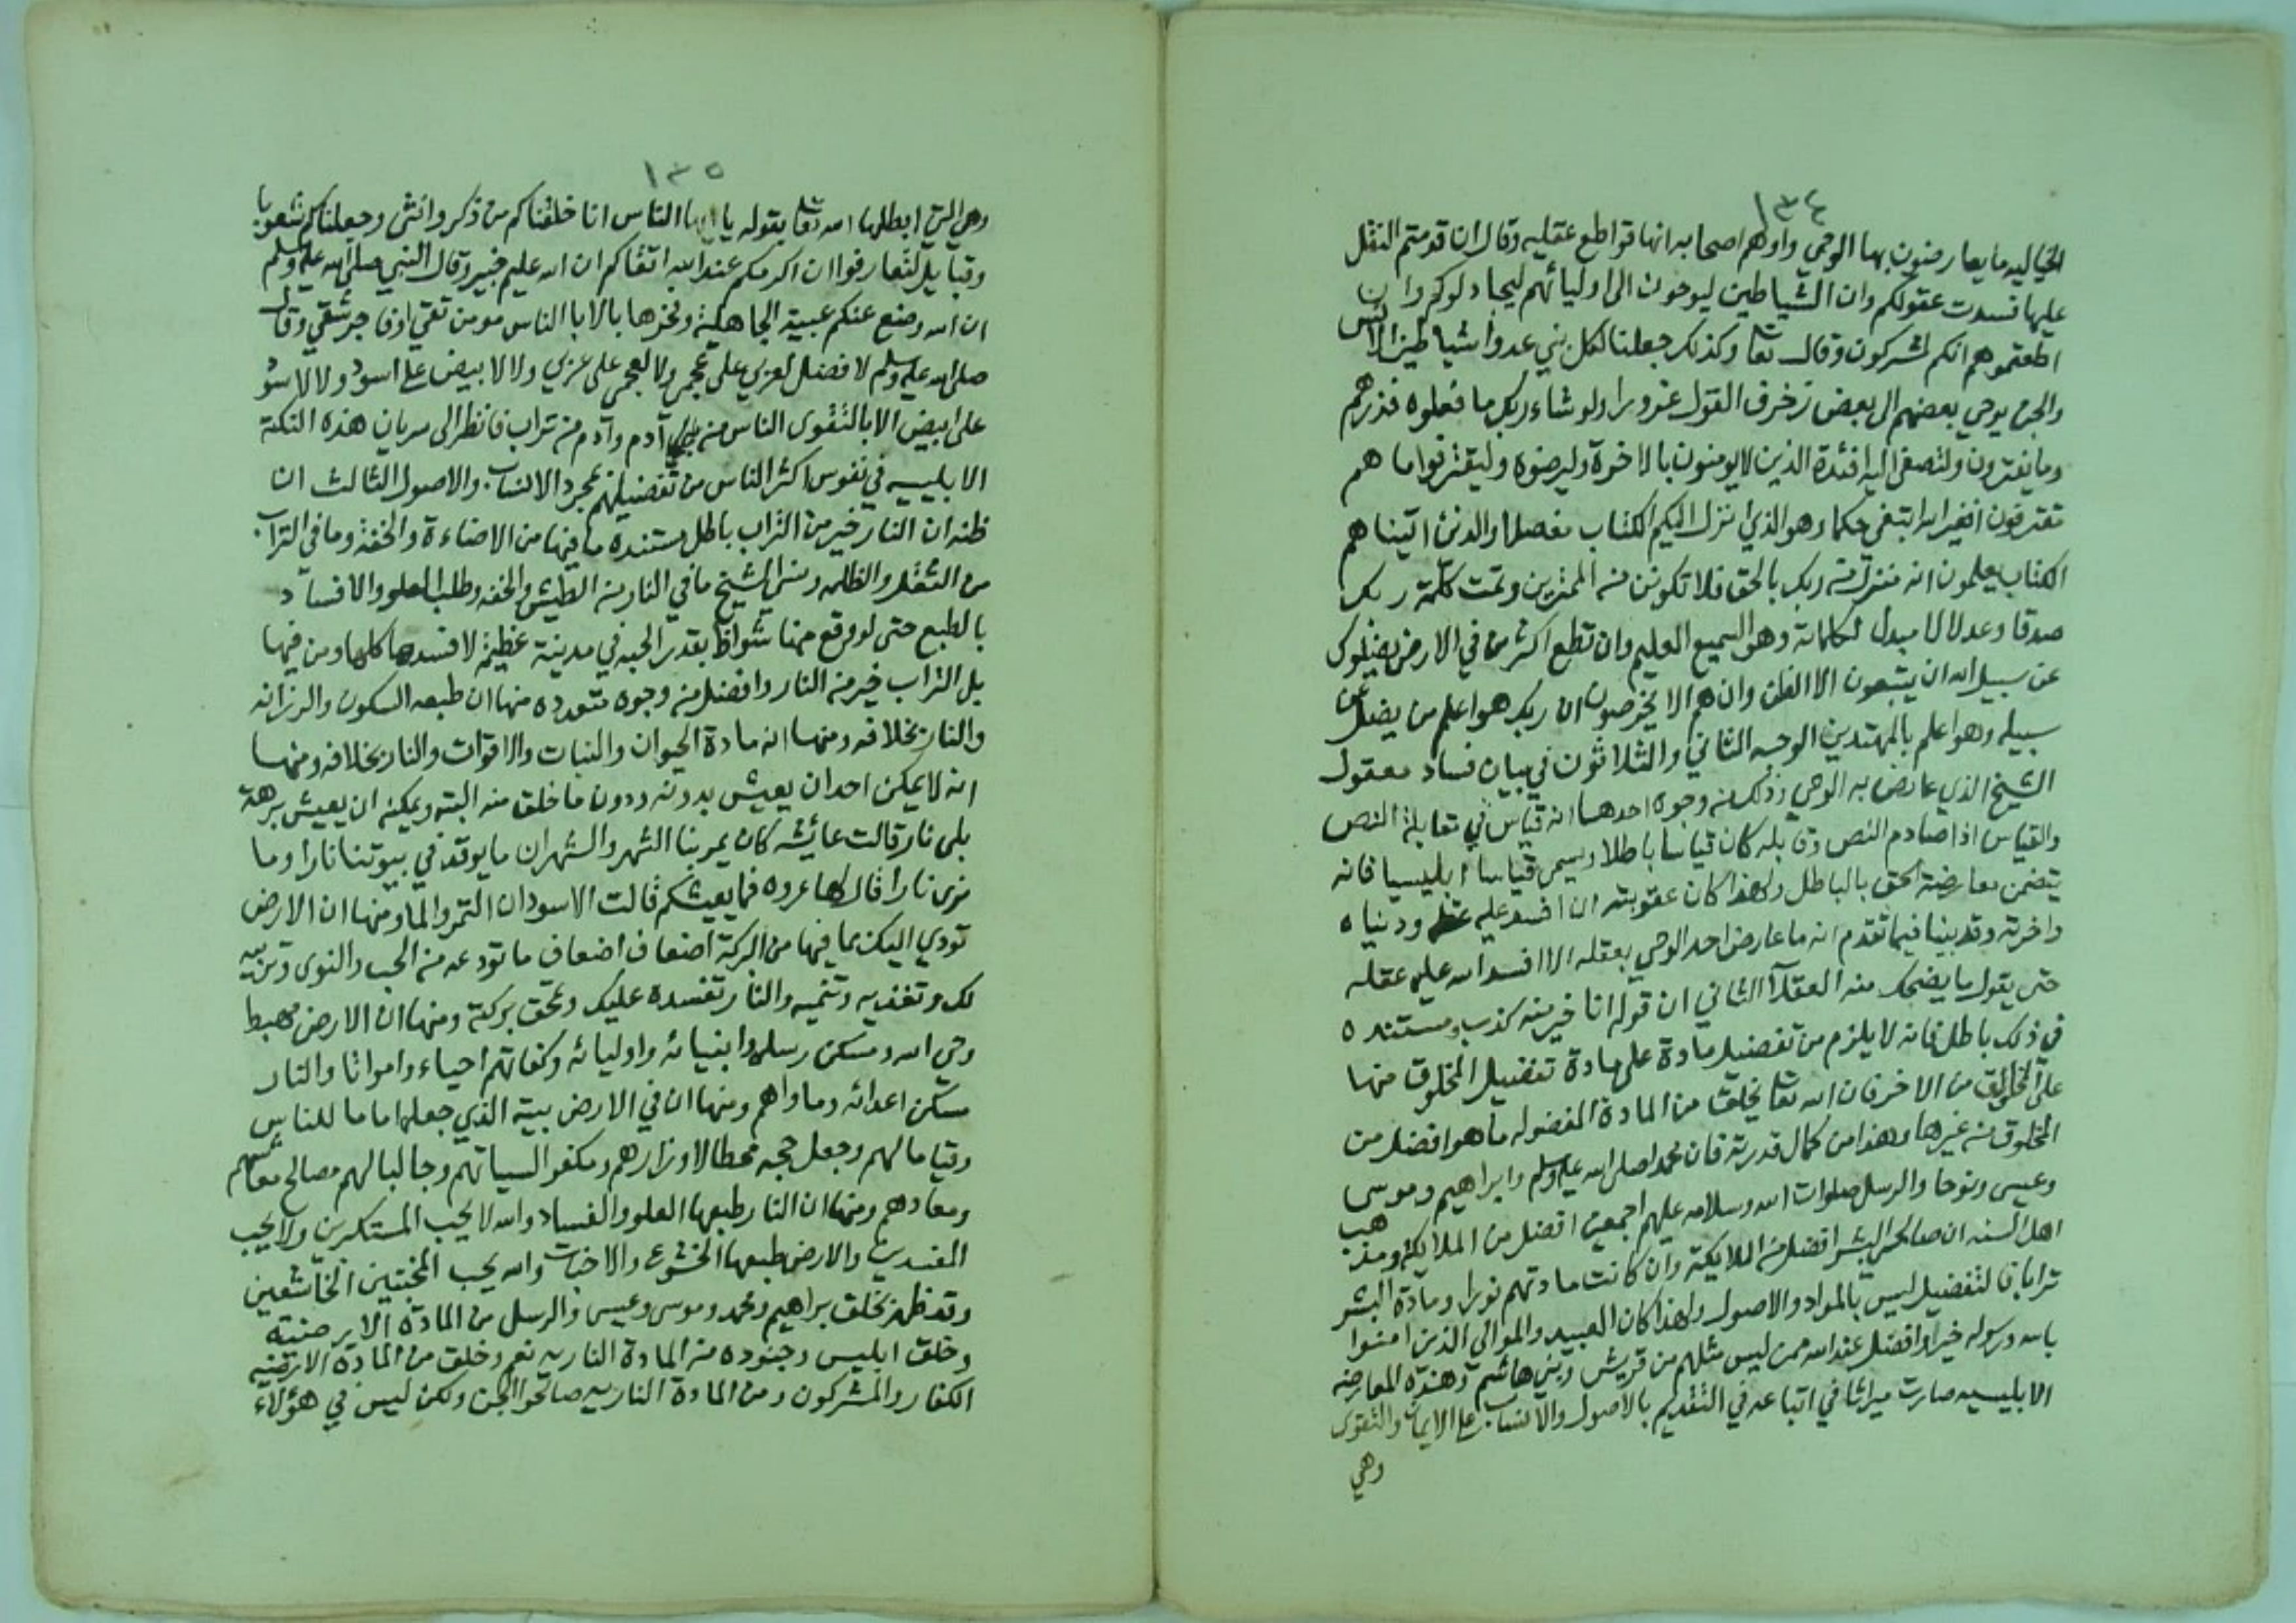 ١٣٤
الخياليه ما يعارضون بها الوحي واوهم اصحابه انها قواطع عقليه وقال ان قدمتم النقل
عليها فسدت عقولكم وان الشياطين ليوحون الى اوليائهم ليجادلوكم وان
اطعتموهم انكم لمشركون وقال تعا وكذلك جعلنا لكل نبي عدوا شياطين الانس
والجن يوحي بعضهم الى بعض زخرف القول غرورا ولو شاء ربك ما فعلوه فذرهم
وما يفترون ولتصغى اليه افئدة الذين لا يومنون بالاخرة وليرضوه وليقترفوا ما هم
مقترفون افغير الله ابتغي حكما وهو الذي انزل اليكم الكتاب مفصلا والذين اتيناهم
الكتاب يعلمون انه منزل من ربك بالحق فلا تكونن من الممترين وتمت كلمة ربك
صدقا وعدلا لا مبدل لكلماته وهو السميع العليم وان تطع اكثر من في الارض يضلوك
عن سبيل الله ان يتبعون الا الظن وان هم الا يخرصون ان ربك هو اعلم من يضل عن
سبيله وهو اعلم بالمهتدين الوجه الثاني والثلاثون في بيان فساد معقول
الشيخ الذي عارض به الوحي وذلك من وجوه احدها انه قياس في مقابلة النص
والقياس اذا صادم النص وقابله كان قياسا باطلا ويسمى قياسا ابليسيا فانه
يتضمن معارضة الحق بالباطل ولهذا كان عقوبته ان افسد عليه عقله ودنياه
واخرته وقد بينا فيما تقدم انه ما عارض احد الوحي بعقله الا افسد الله عليه عقله
حتى يقول ما يضحك منه العقلآ الثاني ان قوله انا خير منه كذب ومستنده
في ذلك باطل فانه لا يلزم من تفضيل مادة على مادة تفضيل المخلوق منها
على المخلوق من الاخر فان الله تعا يخلق من المادة المفضوله ما هو افضل من
المخلوق من غيرها وهذا من كمال قدرته فان محمدا صلى الله عليه وسلم وابراهيم وموسى
وعيسى ونوحا والرسل صلوات الله وسلامه عليهم اجمعين افضل من الملايكة ومذهب
اهل السنه ان صالحي البشر افضل من الملايكة وان كانت مادتهم نورا ومادة البشر
ترابا فالتفضيل ليس بالمواد والاصول ولهذا كان العبيد والموالي الذين امنوا
بالله ورسوله خيرا وافضل عند الله ممن ليس مثلهم من قريش وبني هاشم وهذه المعارضه
الابليسيه صارت ميراثا في اتباعه في التقديم بالاصول والانساب على الايمان والتقوى
وهي
١٣٥
وهي التي ابطلها الله تعا بقوله يا ايها الناس انا خلقناكم من ذكر وانثى وجعلناكم شعوبا
وقبايل لتعارفوا ان اكرمكم عند الله اتقاكم ان الله عليم خبير وقال النبي صلى الله عليه وسلم
ان الله وضع عنكم عبية الجاهلية وفخرها بالابا الناس مومن تقي او فاجر شقي وقال
صلى الله عليه وسلم لا فضل لعربي على عجمي ولا لعجمي على عربي ولا لابيض على اسود ولا لاسود
على ابيض الا بالتقوى الناس من آدم وآدم من تراب فانظر الى سريان هذه النكتة
الابليسيه في نفوس اكثر الناس من تفضيلهم بمجرد الانساب والاصول الثالث ان
ظنه ان النار خير من التراب باطل مستنده ما فيها من الاضاءة والخفة وما في التراب
من الثقل والظلمه ونسي الشيخ ما في النار من الطيش والخفه وطلب العلو والافساد
بالطبع حتى لو وقع منها شواظ بقدر الحبه في مدينة عظيمة لافسدها كلها ومن فيها
بل التراب خير من النار وافضل من وجوه متعدده منها ان طبعه السكون والرزانه
والنار بخلافه ومنها انه مادة الحيوان والنبات والاقوات والنار بخلافه ومنها
انه لا يمكن احد ان يعيش بدونه ودون ما خلق منه البته ويمكنه ان يعيش برهة
بلى نار قالت عائيشه كان يمر بنا الشهر والشهران ما يوقد في بيوتنا نارا وما
نرى نارا قال لها عروه فما يعيشكم قالت الاسودان التمر والما ومنها ان الارض
تودي اليك بما فيها من البركة اضعاف اضعاف ما تودعه من الحب والنوى وتربيه
لك وتغذيه وتنميه والنار تفسده عليك وتمحق بركته ومنها ان الارض مهبط
وحي الله ومسكن رسله وانبيائه واوليائه وكفاتهم احياء وامواتا والنار
مسكن اعدائه وماواهم ومنها ان في الارض بيته الذي جعله اماما للناس
وقياما لهم وجعل حجه محطا لاوزارهم ومكفرا لسياتهم وجالبا لهم مصالح معاشهم
ومعادهم ومنها ان النار طبعها العلو والفساد والله لا يحب المستكبرين ولا يحب
المفسدين والارض طبعها الخشوع والاخبات والله يحب المخبتين الخاشعين
وقد ظهر بخلق ابراهيم ومحمد وموسى وعيسى والرسل من المادة الارضيه
وخلق ابليس وجنوده من المادة الناريه نعم وخلق من المادة الارضيه
الكفار والمشركون ومن المادة الناريه صالحوا الجن ولكن ليس في هؤلاء